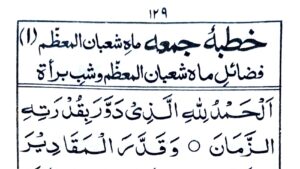 ۱۲۹
خطبۂ جمعه ماہ شعبان المعظّم (۱)
فضائلِ ماہ شعبان المعظّم و شبِ برأة
اَلْحَمْدُ لِلّٰهِ الَّذِىْ دَوَّرَ بِقُدْرَتِهِ
الزَّمَانَ ○ وَقَدَّرَ الْمَقَادِيْرَ